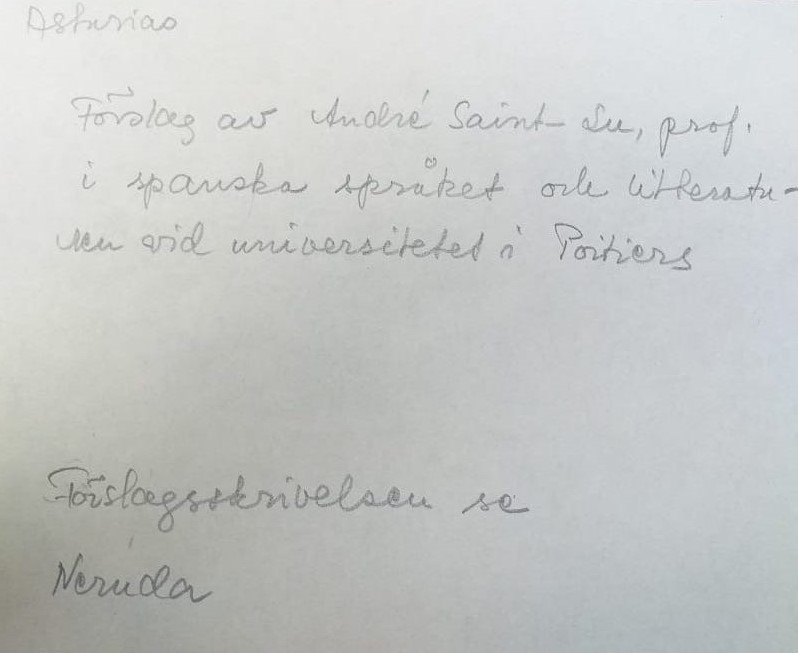 Asturias
Förslag av André Saint-Lu, prof.
i spanska språket och litteratu-
ren vid universitetet i Poitiers
Förslagsskrivelsen se
Neruda